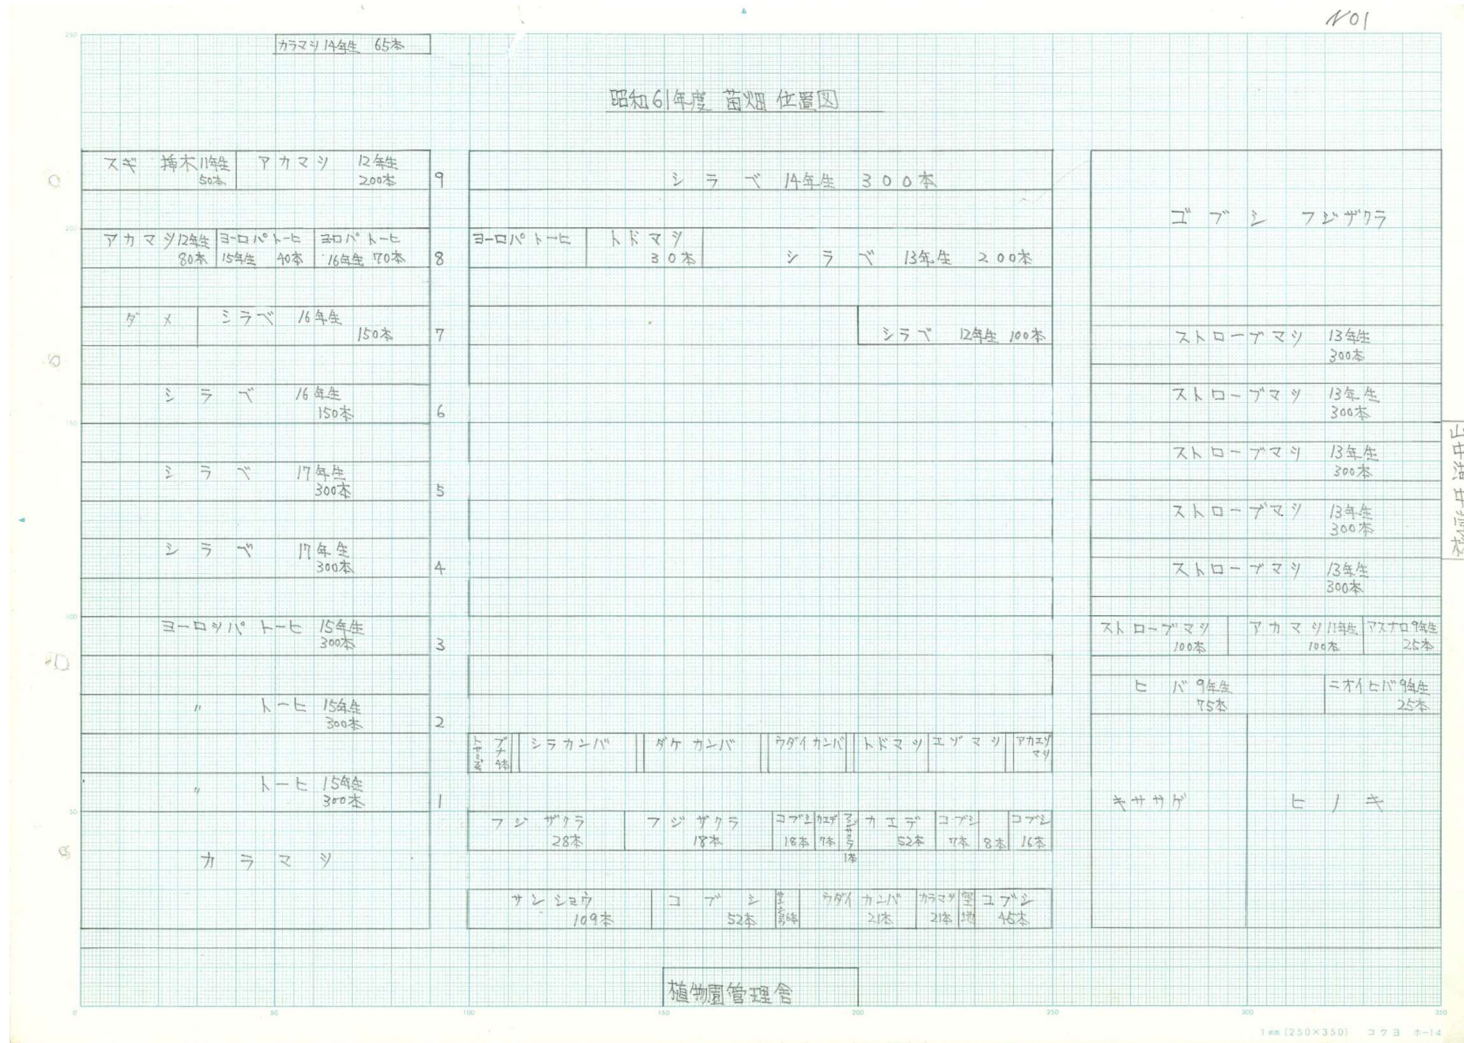 NO1
カラマツ14年生 65本
昭和61年度 苗畑 位置図
スギ 挿木11年生
50本
アカマツ 12年生
200本
9
アカマツ12年生
80本
ヨーロパトーヒ
15年生 40本
ヨロパトーヒ
16年生 70本
8
ダメ
シラベ 16年生
150本
7
シラベ 16年生
150本
6
シラベ 17年生
300本
5
シラベ 17年生
300本
4
ヨーロッパトーヒ 15年生
300本
3
〃 トーヒ 15年生
300本
2
〃 トーヒ 15年生
300本
1
カラマツ
シラベ 14年生 300本
ヨーロパトーヒ
トドマツ
30本
シラベ 13年生 200本
シラベ 12年生 100本
ブナ
4本
シラカンバ
ダケカンバ
ウダイカンバ
トドマツ
エゾマツ
アカエゾ
マツ
フジザクラ
28本
フジザクラ
18本
コブシ
18本
カエデ
7本
1本
カエデ
52本
コブシ
7本
8本
コブシ
16本
サンショウ
109本
コブシ
52本
ウダイカンバ
21本
カラマツ
21本
空地
コブシ
45本
植物園管理舎
ゴブシ フジザクラ
ストローブマツ 13年生
300本
ストローブマツ 13年生
300本
ストローブマツ 13年生
300本
ストローブマツ 13年生
300本
ストローブマツ 13年生
300本
ストローブマツ
100本
アカマツ11年生
100本
アスナロ9年生
25本
ヒバ9年生
75本
ニオイヒバ9年生
25本
キササゲ
ヒノキ
山中湖中学校
0
50
100
150
200
250
300
350
50
100
150
200
250
1mm(250×350) コクヨ ホ-14